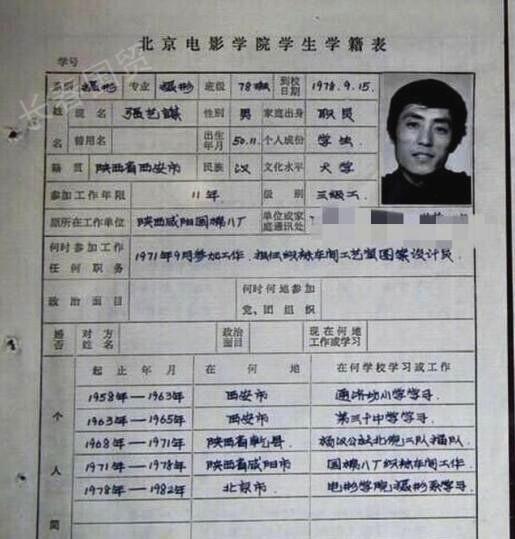 北京电影学院学生学籍表
学号
系别 摄影 专业 摄影 班级 78班 到校日期 1978.9.15.
姓 现名 张艺谋 性别 男 家庭出身 职员
名 曾用名 出生年月 50.11. 个人成份 学生
籍贯 陕西省西安市 民族 汉 文化水平 大学
参加工作年限 11年 级别 三级工
原所在工作单位 陕西咸阳国棉八厂 单位或家庭通讯处
何时参加工作任何职务 1971年9月参加工作. 担任织袜车间工艺室图案设计员.
政治面目 何时何地参加党、团组织
婚否 对方姓名 政治面目 现在何地工作或学习
个人简 起止年月 在何地 在何学校学习或工作
1958年—1963年 西安市 通济坊小学学习
1963年—1965年 西安市 第三十中学学习
1968年—1971年 陕西省乾县 杨汉公社北倪二队插队
1971年—1978年 陕西省咸阳市 国棉八厂织袜车间工作
1978年—1982年 北京市 电影学院摄影系学习